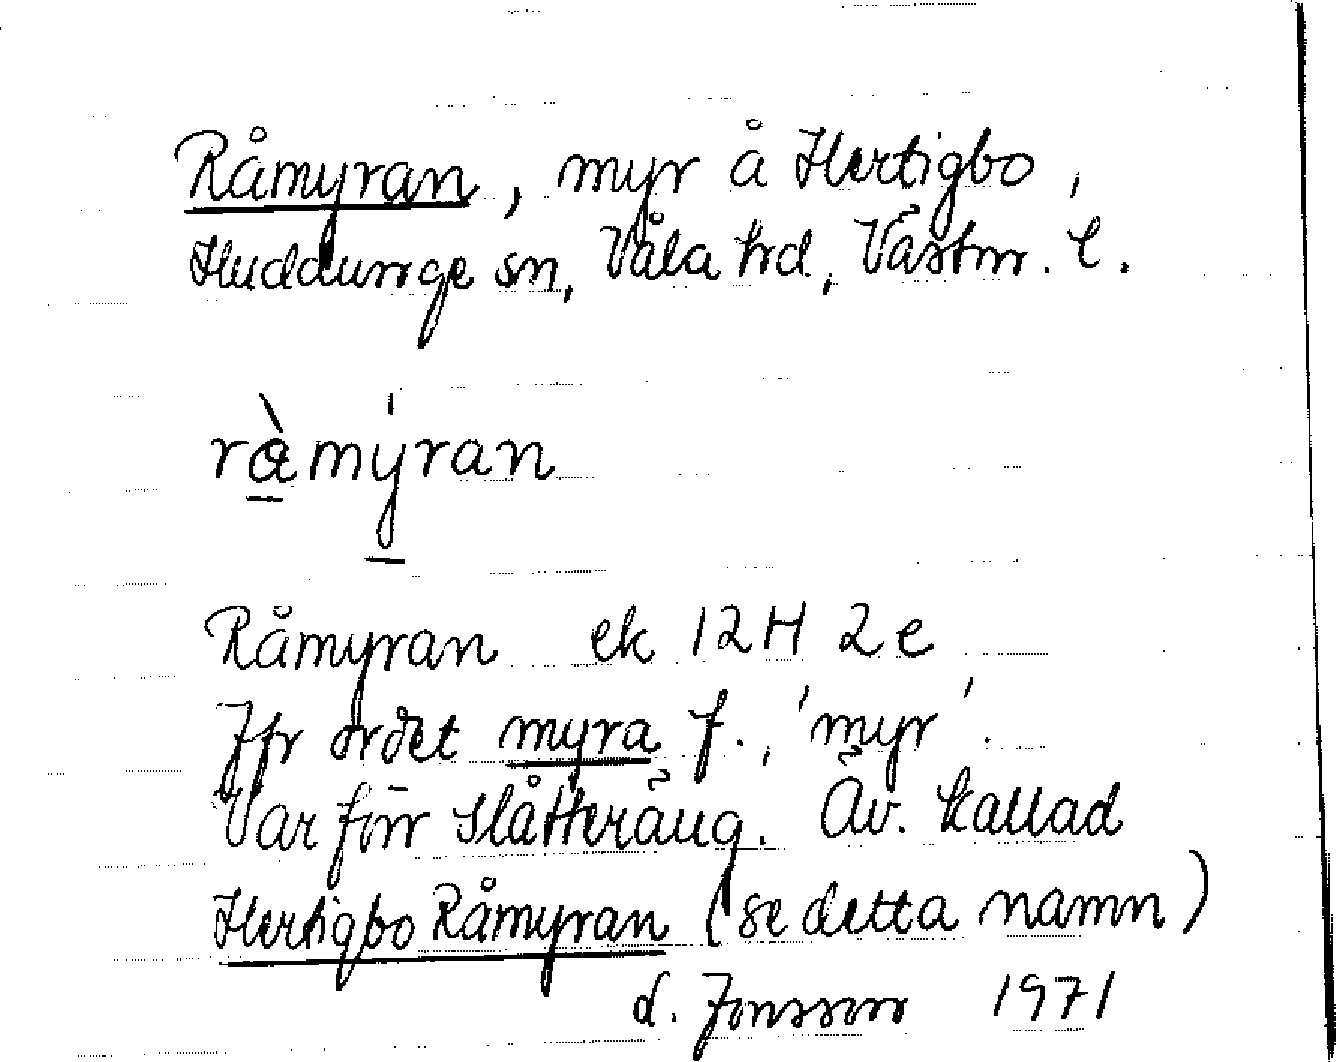 Råmyran, myr å Hertigbo,
Huddunge sn, Våla hd, Västm. l.
rå̀mýran
Råmyran ek 12H 2e
Jfr ordet myra f., 'myr'.
Var förr slåtteräng. Äv. kallad
Hertigbo Råmyran (se detta namn)
d. Jonsson 1971